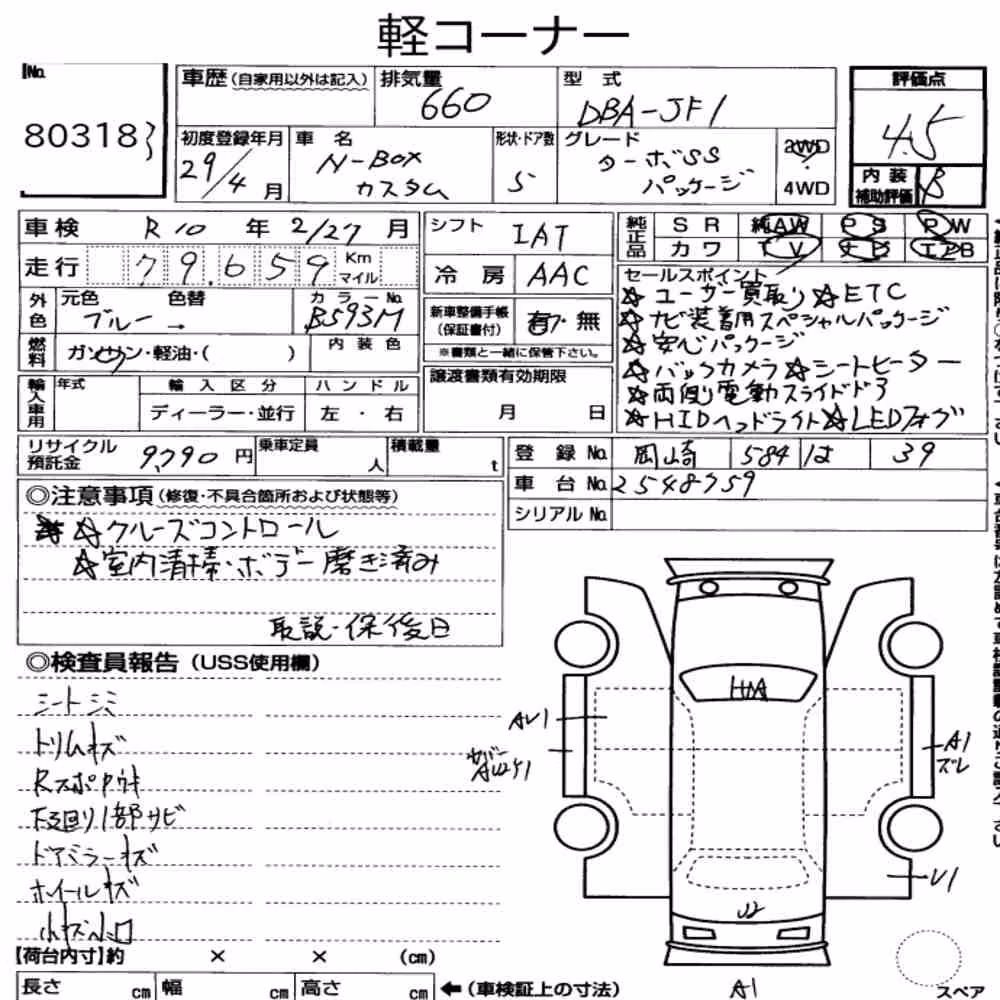 軽コーナー
No. 80318
車歴 (自家用以外は記入) 排気量 660 型式 DBA-JF1 評価点 4.5
初度登録年月 29/4月 車名 N-BOX カスタム 形状・ドア数 5 グレード ターボSS パッケージ 2WD 4WD 内装補助評価 B
車検 R10年 2/27月 シフト IAT 純正品 SR 純AW PS PW
走行 79,659 Km マイル 冷房 AAC カワ TV ナビ エアB
外色 元色 ブルー 色替 カラーNo. B593M 新車整備手帳(保証書付) 有・無
燃料 ガソリン・軽油・( ) 内装色 ※書類と一緒に保管下さい。
輸入車用 年式 輸入区分 ディーラー・並行 ハンドル 左・右 譲渡書類有効期限 月 日
セールスポイント
☆ユーザー買取り ☆ETC
☆ナビ装着用スペシャルパッケージ
☆安心パッケージ
☆バックカメラ ☆シートヒーター
☆両側電動スライドドア
☆HIDヘッドライト ☆LEDフォグ
リサイクル預託金 9,790円 乗車定員 人 積載量 t
登録No. 岡崎 584 は 39
車台No. 2548759
シリアルNo.
◎注意事項 (修復・不具合箇所および状態等)
☆クルーズコントロール
☆室内清掃・ボデー磨き済み
取説・保後日
◎検査員報告 (USS使用欄)
シートシミ
トリムキズ
下廻り1部サビ
ドアミラーキズ
ホイールキズ
小キズ小凹
AU1
A1
ズレ
U1
U2
A1
スペア
【荷台内寸】約 × × (cm)
長さ cm 幅 cm 高さ cm ←(車検証上の寸法)